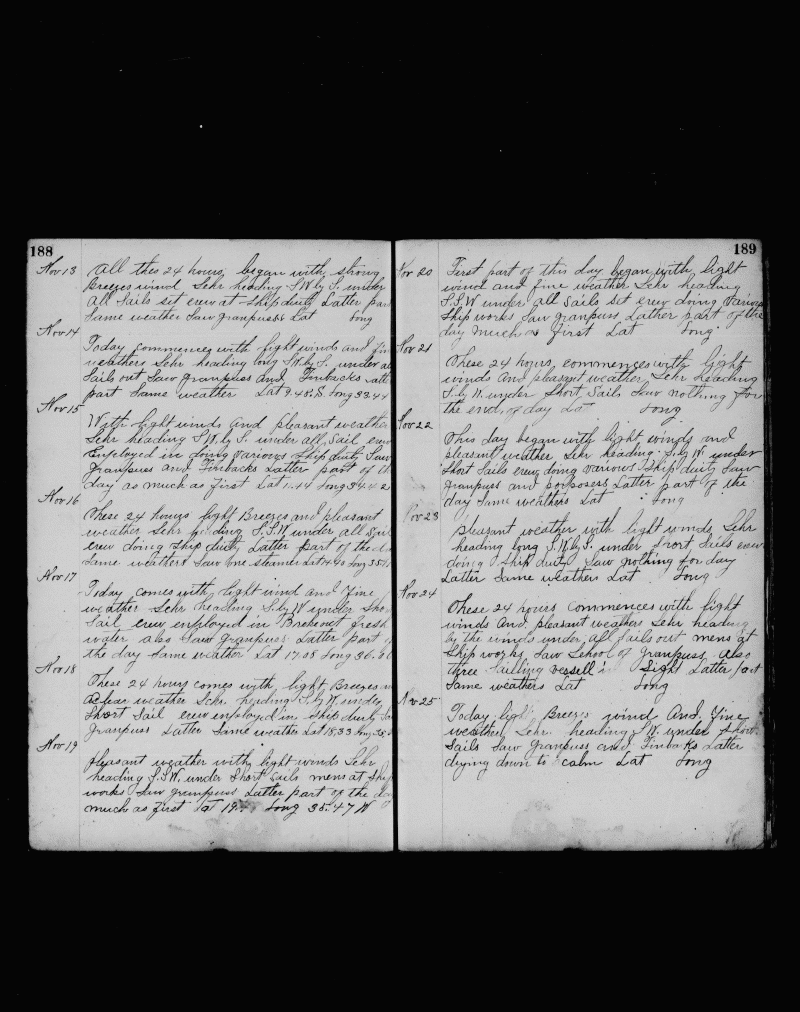 188
Nov 13 All thes 24 hours began with strong
Breezes wind Schr heading S.W. by S. under
all Sails set crew at ship duty Latter part
Same weather Saw granpuss Lat Long
Nov 14
Today commences with light winds and fin
weathers Schr heading long S.W. by S. under al
Sails out Saw granpuss and Finbacks latt
part Same weather Lat 9.48. S. Long 33.44
Nov 15
With light winds And pleasant weather
Schr heading S.W. by S. under all Sail crew
Employed in doing various Ship duty Saw
Granpuss and Finbacks Latter part of th
day as much as first Lat 11.14 Long 34.42
Nov 16
These 24 hours light Breezes and pleasant
weather Schr heading S.S.W under all Sail
crew doing Ship duty Latter part of the
Same weathers Saw one steamer Lat Long
Nov 17
Today comes with light wind and fine
weather Schr heading S. by W under Sho
Sail crew employed in Brekeout fresh
water also Saw Granpuss Latter part
the day Same weather Lat 17.08 Long 36.
Nov 18
These 24 hours comes with light Breezes
weather Schr heading S. by W. under
Short Sail crew employed in Ship duty Sa
granpuss Latter Same weather Lat 18,33 Long 35
Nov 19
pleasant weather with light winds Schr
heading S.S.W. under Short Sails mens at Ship
works Saw granpuss Latter part of the day
much as first Lat 19 Long 35.47 W
189
Nov 20 First part of this day began with light
wind and fine weather Schr heading
S.S.W under all Sails set crew doing various
Ship works Saw granpuss Lather part of the
day much as First Lat Long
Nov 21
These 24 hours, commences with light
winds And pleasant weather Schr heading
S. by W. under Short Sails Saw nothing for
the end, of day La Long
Nov 22
This day began with light winds and
pleasant weather Schr heading S. by W. under
Short Sails crew doing various Ship duty Saw
granpuss and porposers Latter part of the
day Same weathers Lat Long
Nov 23
pleasant weather with light winds Schr
heading long S.W. by S. under Short Sails crew
doing Ship duty Saw nothing for day
Latter Same weathers Lat Long
Nov 24
These 24 hours Commences with light
winds And pleasant weathers Schr heading
by the winds under, all Sails out mens at
Ship works Saw School of granpuss, also
three Sailling vessell in Sight Latter part
Same weathers Lat Long
Nov 25
Today light Breezes wind And Fine
weather Schr heading S W. under Short
Sails Saw Granpuss and Finbacks Latter
dying down to calm Lat Long